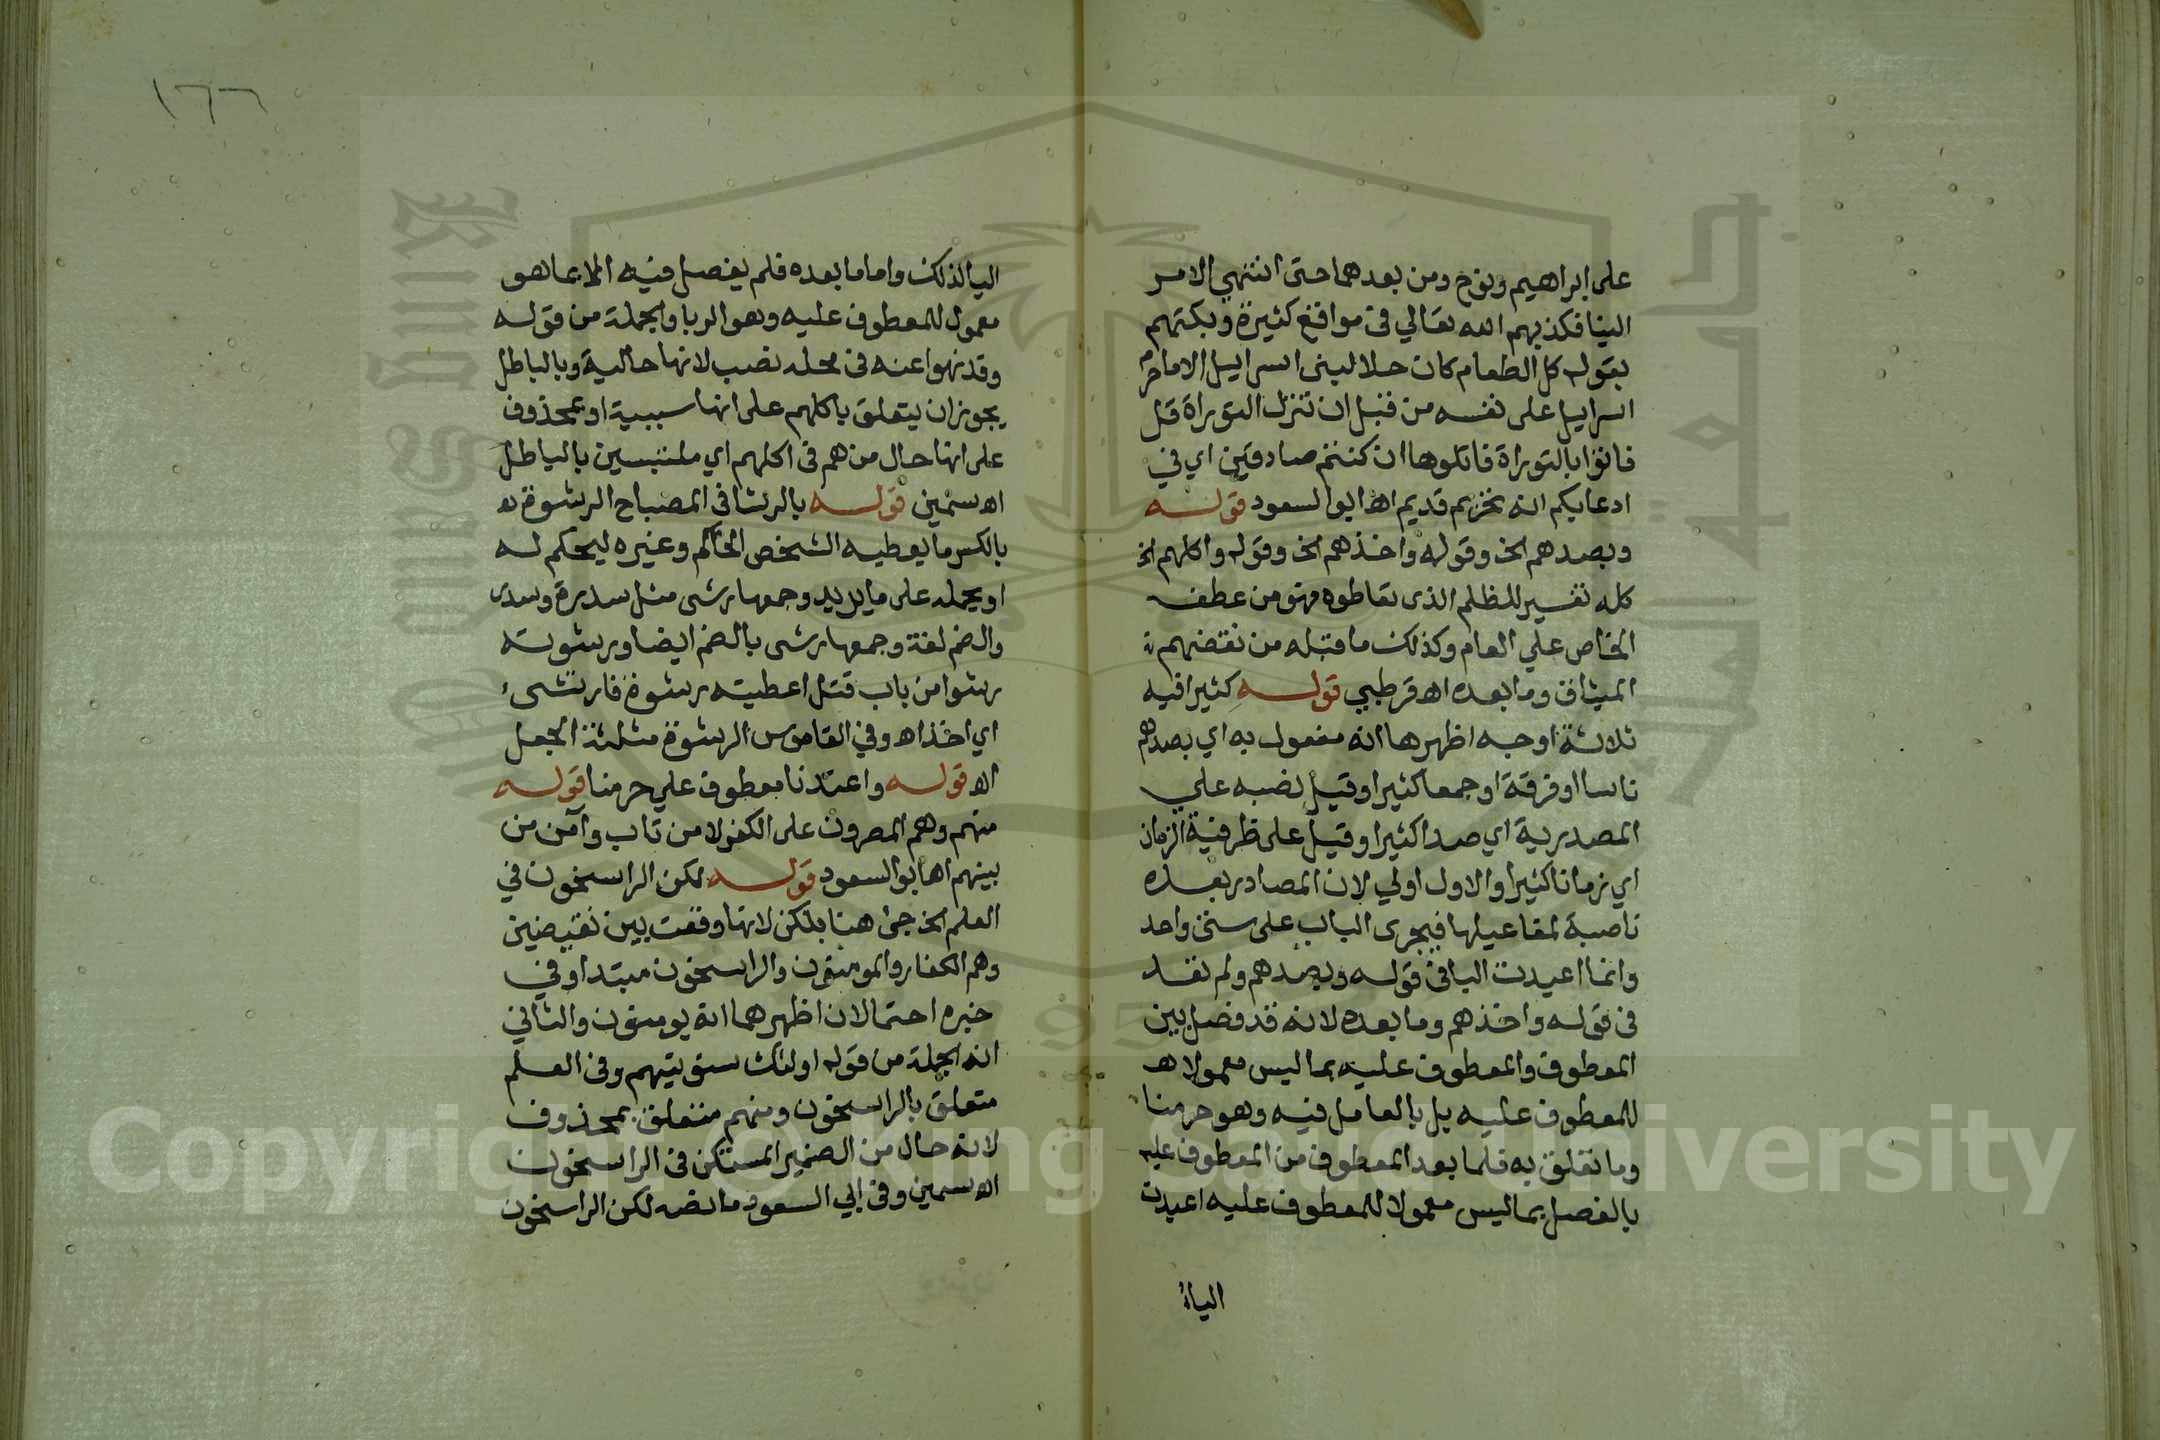 على ابراهيم ونوح ومن بعدهما حتى انتهي الامر
الينا فكذبهم الله تعالي في مواقع كثيرة وبكتهم
بقوله كل الطعام كان حلا لبنى اسرايل الا ما حرم
اسرايل على نفسه من قبل ان تنزل التوراة قل
فاتوا بالتوراة فاتلوها ان كنتم صادقين اي في
ادعايكم انه تحريم قديم اه ابو السعود قوله
وبصدهم الخ وقوله واخذهم الخ وقوله واكلهم الخ
كله تفسير للظلم الذى تعاطوه فهو من عطف
الخاص علي العام وكذلك ما قبله من نقضهم
الميثاق وما بعده اه قرطبي قوله كثيرا فيه
ثلاثة اوجه اظهرها انه مفعول به اي بصدهم
ناسا او فرقة او جمعا كثيرا وقيل نصبه علي
المصدرية اي صدا كثيرا وقيل على ظرفية الزمان
اي زمانا كثيرا والاول اولي لان المصادر بعده
ناصبة لمفاعيلها فيجرى الباب على سنن واحد
وانما اعيدت البا في قوله وبصدهم ولم تعد
في قوله واخذهم وما بعده لانه قد فصل بين
المعطوف والمعطوف عليه بما ليس معمولا
للمعطوف عليه بل بالعامل فيه وهو حرمنا
وما تعلق به فلما بعد المعطوف من المعطوف عليه
بالفصل بما ليس معمولا للمعطوف عليه اعيدت
الياء
١٦٦
اليا لذلك واما ما بعده فلم يفصل فيه الا بما هو
معمول للمعطوف عليه وهو الربا والجملة من قوله
وقد نهوا عنه في محل نصب لانها حالية وبالباطل
يجوز ان يتعلق باكلهم على انها سببية او بمحذوف
على انها حال من هم في اكلهم اي ملتبسين بالباطل
اه سمين قوله بالرشا في المصباح الرشوة
بالكسر ما يعطيه الشخص الحاكم وغيره ليحكم له
او يحمله على ما يريد وجمعها رشى مثل سدرة وسدر
والضم لغة وجمعها رشى بالضم ايضا ورشوته
رشوا من باب قتل اعطيته رشوة فارتشى
اي اخذ اه وفي القاموس الرشوة مثلثة الجعل
اه قوله واعتدنا معطوف علي حرمنا قوله
منهم وهم المصرون على الكفر لا من تاب وآمن من
بينهم اه ابو السعود قوله لكن الراسخون في
العلم الخ جئ هنا بلكن لانها وقعت بين نقيضين
وهم الكفار والمومنون والراسخون مبتدا وفي
خبره احتمالان اظهرهما انه يومنون والثاني
انه الجملة من قوله اولئك سنوتيهم وفي العلم
متعلق بالراسخون ومنهم متعلق بمحذوف
لانه حال من الضمير المستكن في الراسخون
اه سمين وفي ابي السعود ما نصه لكن الراسخون
Copyright © King Saud University